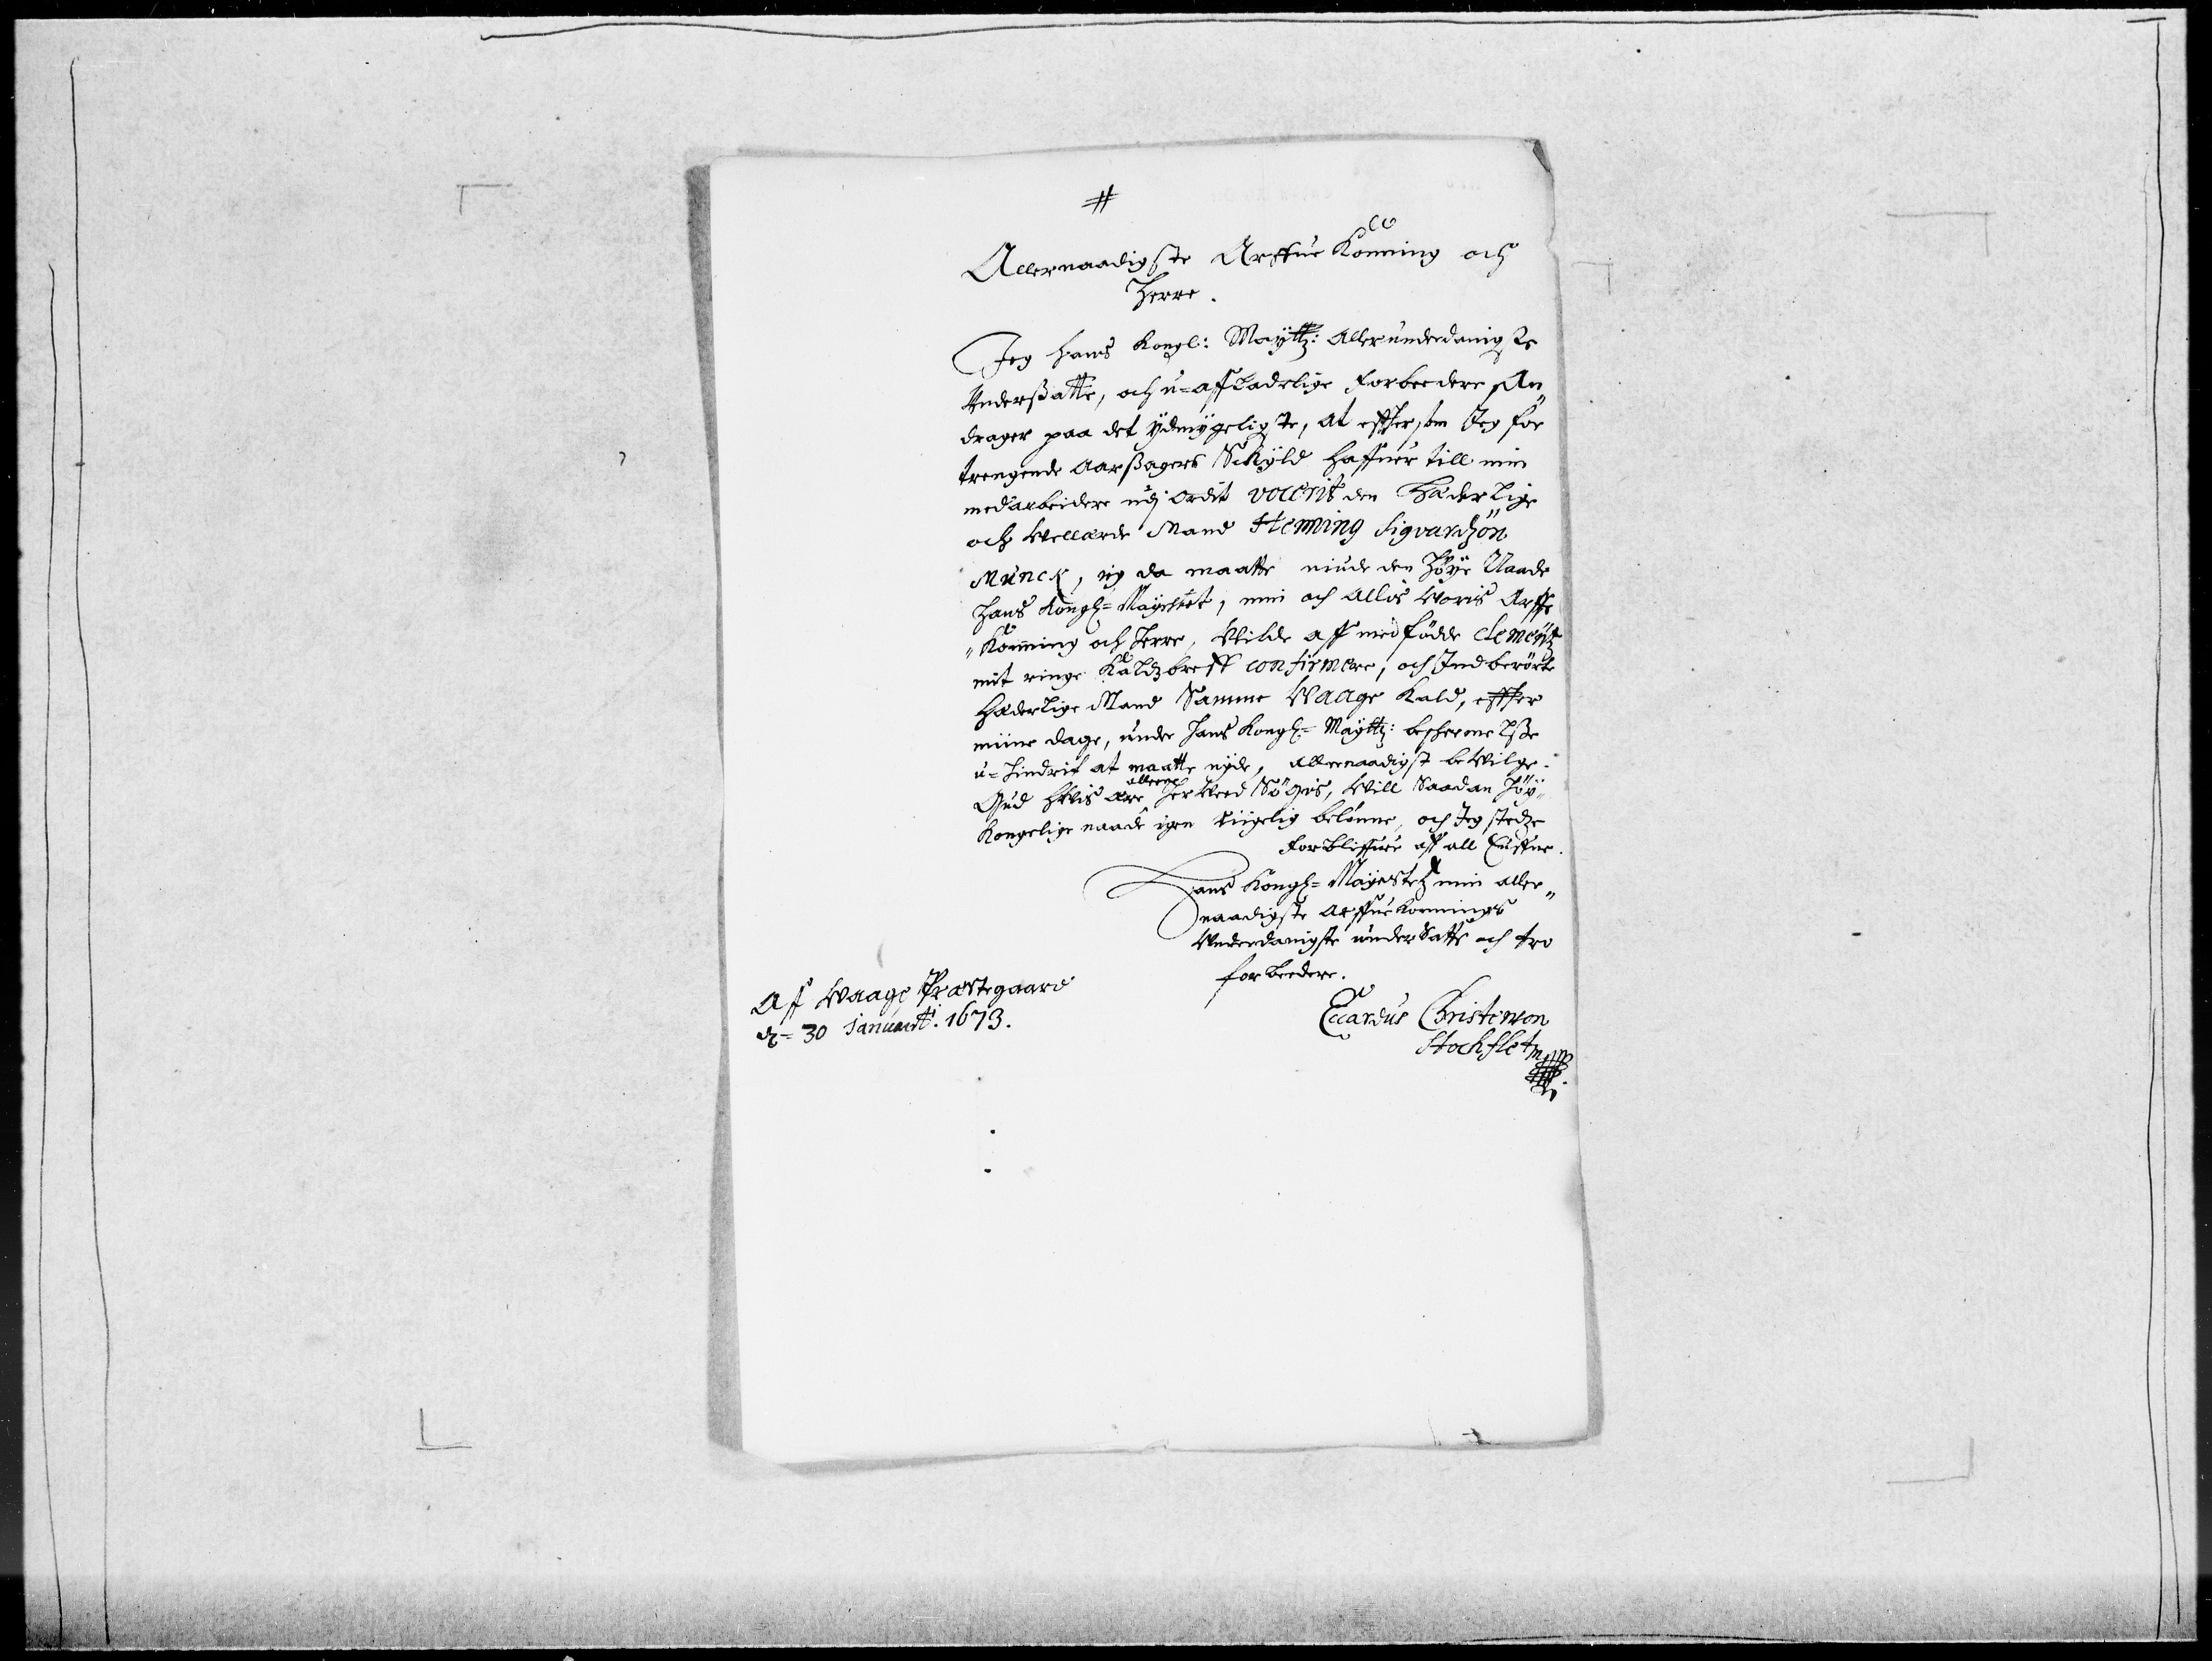 Allernaadigste Arffue Konning och
Herre.
Jeg hans Kongl: Mayttz: Allerunderdanigste
Undersatte, och u-afladelige forbeedere An„
drager paa det ydmygeligste, at effter som Jeg for
trengende Aarsagers Skyld haffuer till min
medarbeidere udj ordet vocerit den Hæderlige
och Wellærde Mand Heming Sigvardsøn
Munck, jeg da maatte niude den Høye Naade
Hans Kongl= Mayestet, min och Allis Woris Arffe
„Konning och Herre, Wilde aff medfødde clementz
mit ringe Kaldzbreff confirmere, och Indberørte
Hæderlige Mand Samme Waage Kald, effter
miine dage, under Hans Kongl= Mayttz: beskermelse
u-hindrit at maatte nyde, allernaadigst bewilge.
Gud hwis ære allerene herwed Søges, Will Saadan Høy„
Kongelige naade igen riigelig belønne, och Jeg stedze
forbliffuer aff all Euffne.
Hans Kongl= Mayestetz min aller„
naadigste Arffue Konnings
Underdanigste undersatte och tro
forbeedere.
Aff Waage Præstegaard
d= 30 Januarii. 1673.
Eccardus Christenson
Stockflet mppa